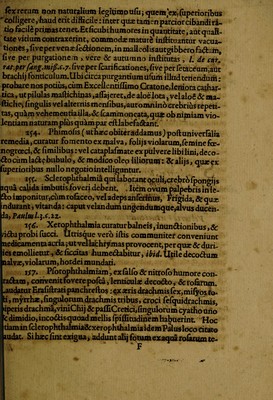 sex rerum non naturalium legitimo usu; quem ex superioribus
colligere, haud erit difficile: inter quæ tamen parcior cibandi ra-
tio facilè primas tenet. Est in cibi humores in quantitate, aut quali-
tate vitium contraxerint, commodè maturè instituantur vacua-
tiones, sive per venæ sectionem, in malleolis aut gibbero factam,
sive per purgationem, vere & autumno institutas: l. de cur.
rat. per sang. miss. c. 7. sive per scarificationes, sive per setaceum, aut
brachij fonticulum. Ubi circa purgantium usum illud tenendum:
probare nos potius, cum Excellentissimo Cratone, leniora cathar-
tica, ut pilulas mastichinas, assajeret, de aloë lota, vel aloë & ma-
stiche, singulis vel alternis mensibus, aut omnino crebriùs repeti-
tas, quàm vehementia illa, & scamoneata, quæ ob nimiam vio-
lentiam naturam plùs quàm par est labefactant.
154. Phimosin (ut hæc obiter addamus) post universalia
remedia, curatur fomento ex malva, folijs violarum, semine fœ-
nogræci, & similibus: vel cataplasmate ex pulvere libistici, deco-
cto cum lacte bubulo, & modico oleo liliorum: & alijs, quæ ex
superioribus nullo negotio intelliguntur.
155. Sclerophthalmiâ qui laborant oculi, crebrò spongijs
aquâ calida imbutis foveri debent. Item ovum palpebris infe-
cto imponitur, cum rosaceo, vel adepe anserinus, Frigida, & quæ
indurant, vitanda: caput velandum ungendumque, alvus ducen-
da, Paulus l. 3. c. 22.
156. Xerophthalmia curatur balneis, inunctionibus, &
victu probi succi. Utrisque verò istis communiter conveniunt
medicamenta acria; ut vel lachrymas provocent, per quæ & duri-
ties emollitur, & siccitas humectabitur, ibid. Utile decoctum
malvæ, violarum, hordei mundati.
157. Psorophthalmiam, ex salso & nitroso humore con-
tractam, convenit fovere poscâ, lenticulæ decocto, & rosarum.
Laudatur Erasistrati panchrestos: ex æris drachmis sex, misyos sc-
ti, myrrhæ, singulorum drachmis tribus, croci sesquidrachmis,
piperis drachmâ, vini Chij & passi Cretici, singulorum cyatho uno
& dimidio, in coctis quoad mellis spissitudinem habuerint. Hoc
etiam in sclerophthalmia & xerophthalmia idem Palus loco citato
laudat. Si hæc sint exigua, addunt alij sotum ex aqua rosarum te-
F